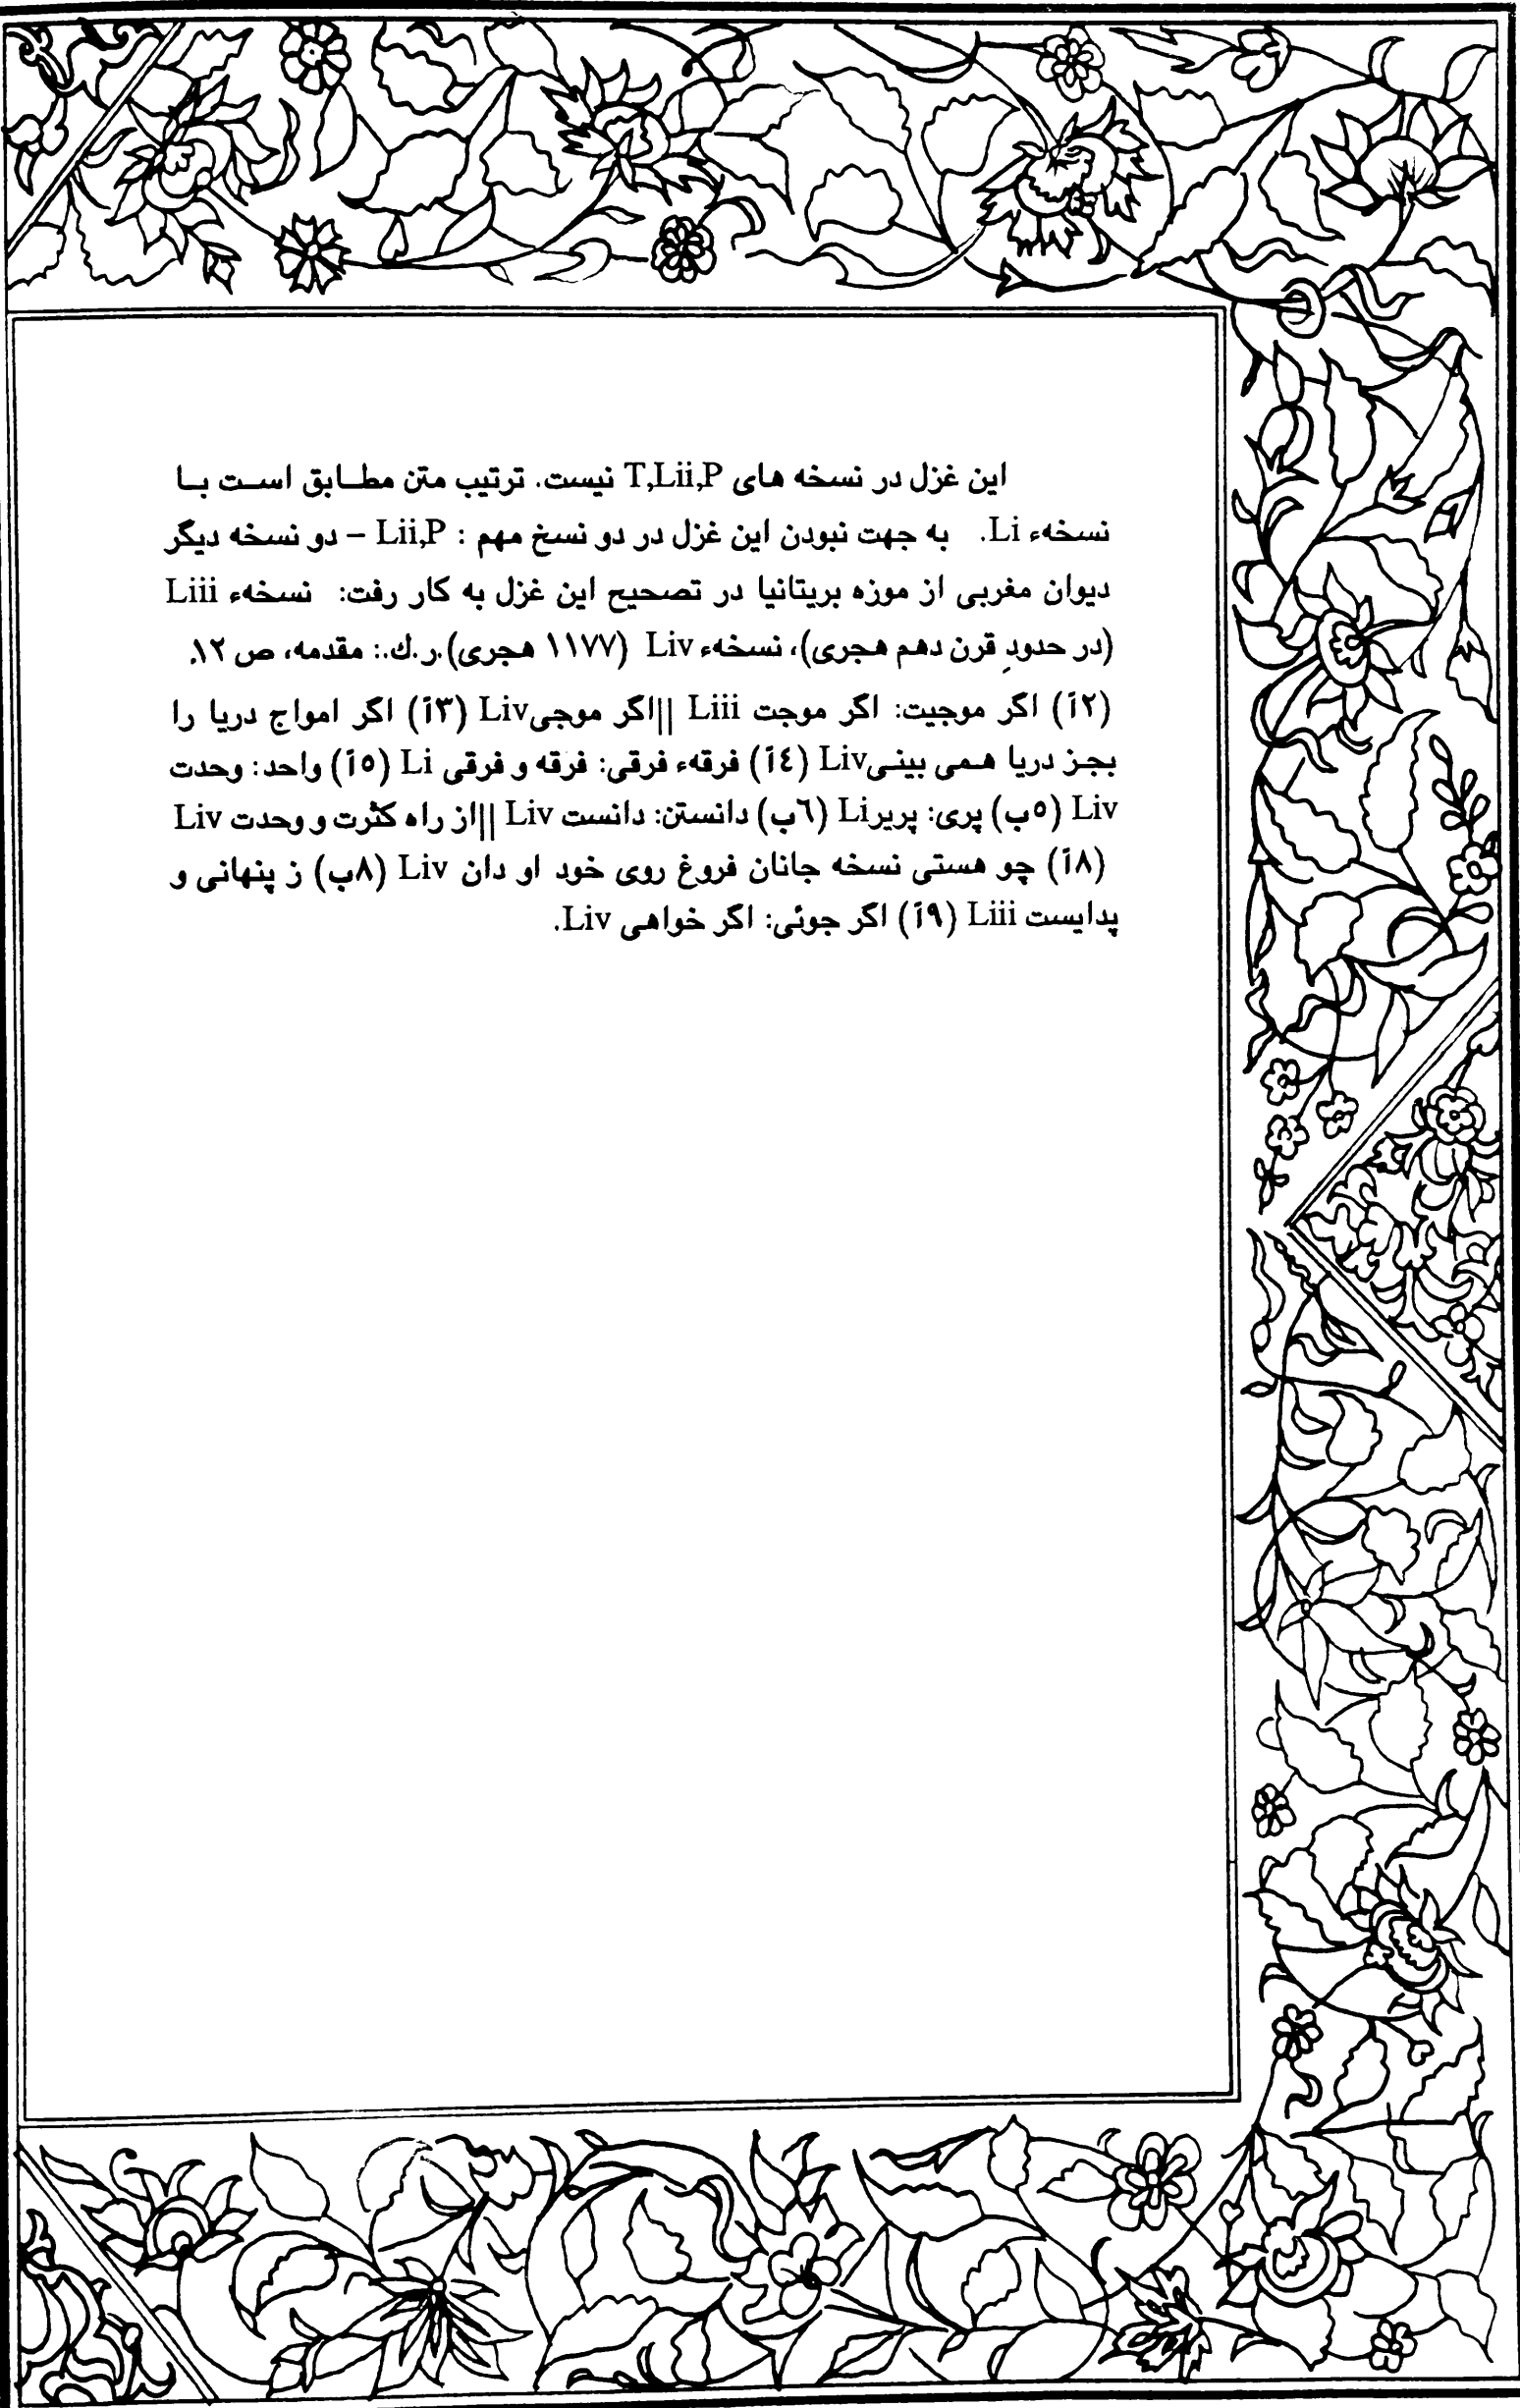 این غزل در نسخه های T,Lii,P نیست. ترتیب متن مطابق است با
نسخهء Li. به جهت نبودن این غزل در دو نسخ مهم : Lii,P – دو نسخه دیگر
دیوان مغربی از موزه بریتانیا در تصحیح این غزل به کار رفت: نسخهء Liii
(در حدودِ قرن دهم هجری)، نسخهء Liv (۱۱۷۷ هجری).ر.ك.: مقدمه، ص ۱۲.
(۲آ) اگر موجیت: اگر موجت Liii ||اگر موجیLiv (۳آ) اگر امواج دریا را
بجز دریا همی بینیLiv (٤آ) فرقهء فرقی: فرقه و فرقی Li (٥آ) واحد: وحدت
Liv (٥ب) پری: پریرLi (٦ب) دانستن: دانست Liv ||از راه کثرت و وحدت Liv
(۸آ) چو هستی نسخه جانان فروغ روی خود او دان Liv (۸ب) ز پنهانی و
پدایست Liii (۹آ) اگر جوئی: اگر خواهی Liv.